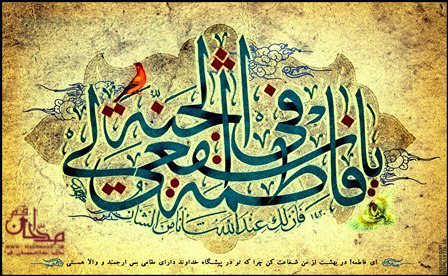 يا فاطمة اشفعي لي في الجنة
فإن لك عند الله شأنا من الشأن
ای فاطمه! در بهشت از من شفاعت کن چرا که تو در پیشگاه خداوند دارای مقامی بس ارجمند و والا هستی